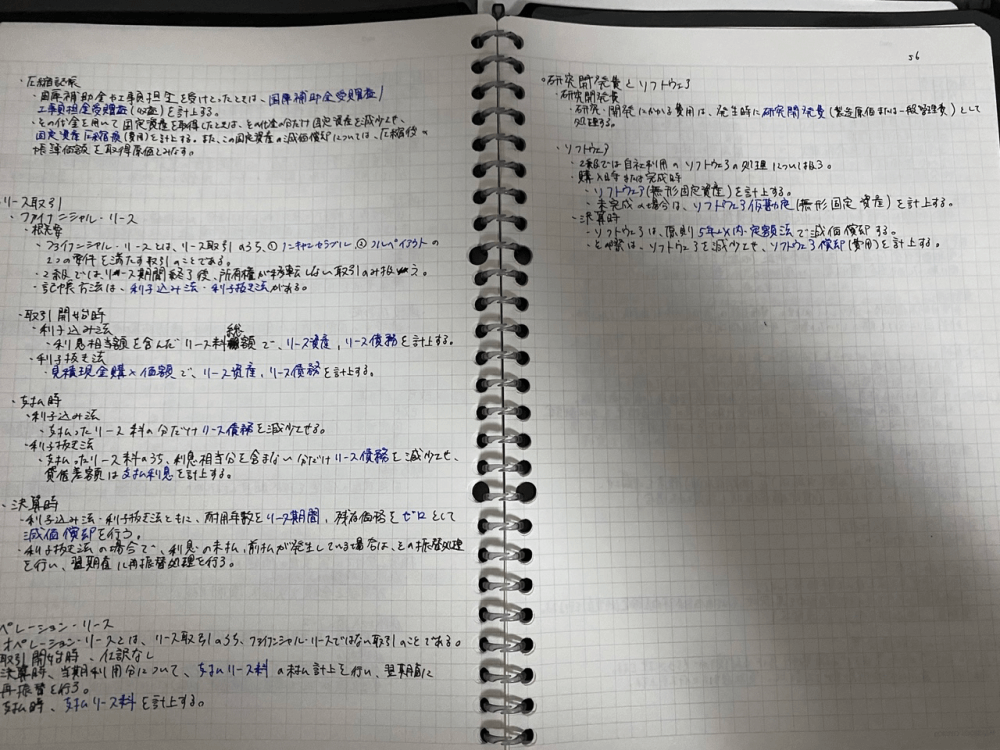 ・圧縮記帳
・国庫補助金や工事負担金を受けとったときは、国庫補助金受贈益/
工事負担金受贈益(収益)を計上する。
・その代金を用いて固定資産を取得したときは、その代金の分だけ固定資産を減少させ、
固定資産圧縮損(費用)を計上する。また、この固定資産の減価償却については、圧縮後の
帳簿価額を取得原価とみなす。
リース取引
・ファイナンシャル・リース
・概要
・ファイナンシャル・リースとは、リース取引のうち、①ノンキャンセラブル ②フルペイアウトの
2つの要件を満たす取引のことである。
・2級では、リース期間終了後、所有権が移転しない取引のみ扱う。
・記帳方法は、利子込み法・利子抜き法がある。
・取引開始時
・利子込み法
・利息相当額を含んだリース料総額で、リース資産,リース債務を計上する。
・利子抜き法
・見積現金購入価額で、リース資産,リース債務を計上する。
・支払時
・利子込み法
・支払ったリース料の分だけリース債務を減少させる。
・利子抜き法
・支払ったリース料のうち、利息相当分を含まない分だけリース債務を減少させ、
貸借差額は支払利息を計上する。
・決算時
・利子込み法・利子抜き法ともに、耐用年数をリース期間,残存価額をゼロとして
減価償却を行う。
・利子抜き法の場合で、利息の未払,前払が発生している場合は、その振替処理
を行い、翌期首に再振替処理を行う。
ペレーション・リース
オペレーション・リースとは、リース取引のうち、ファイナンシャル・リースではない取引のことである。
取引開始時、仕訳なし
決算時、当期利用分について、支払リース料の未払計上を行い、翌期首に
再振替を行う。
支払時、支払リース料を計上する。
56
○研究開発費とソフトウェア
・研究開発費
・研究・開発にかかる費用は、発生時に研究開発費(製造原価または一般管理費)として
処理する。
・ソフトウェア
・2級では自社利用のソフトウェアの処理について扱う。
・購入時または完成時
・ソフトウェア(無形固定資産)を計上する。
・未完成の場合は、ソフトウェア仮勘定(無形固定資産)を計上する。
・決算時
・ソフトウェアは、原則5年以内・定額法で減価償却する。
・その際は、ソフトウェアを減少させ、ソフトウェア償却(費用)を計上する。